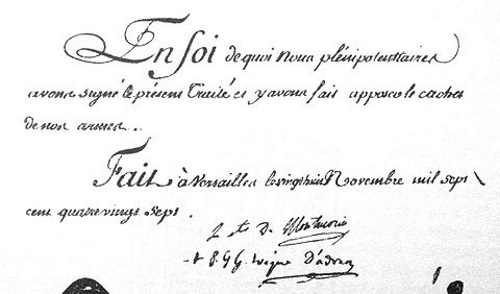 En foi de quoi nous plénipotentiaires
avons signé le présent Traité et y avons fait apposer le cachet
de nos armes..
Fait à Versailles le vingt huit Novembre mil sept
cent quatre vingt sept.
Le Cte De Montmorin
P.J.G. Evêque D'adran